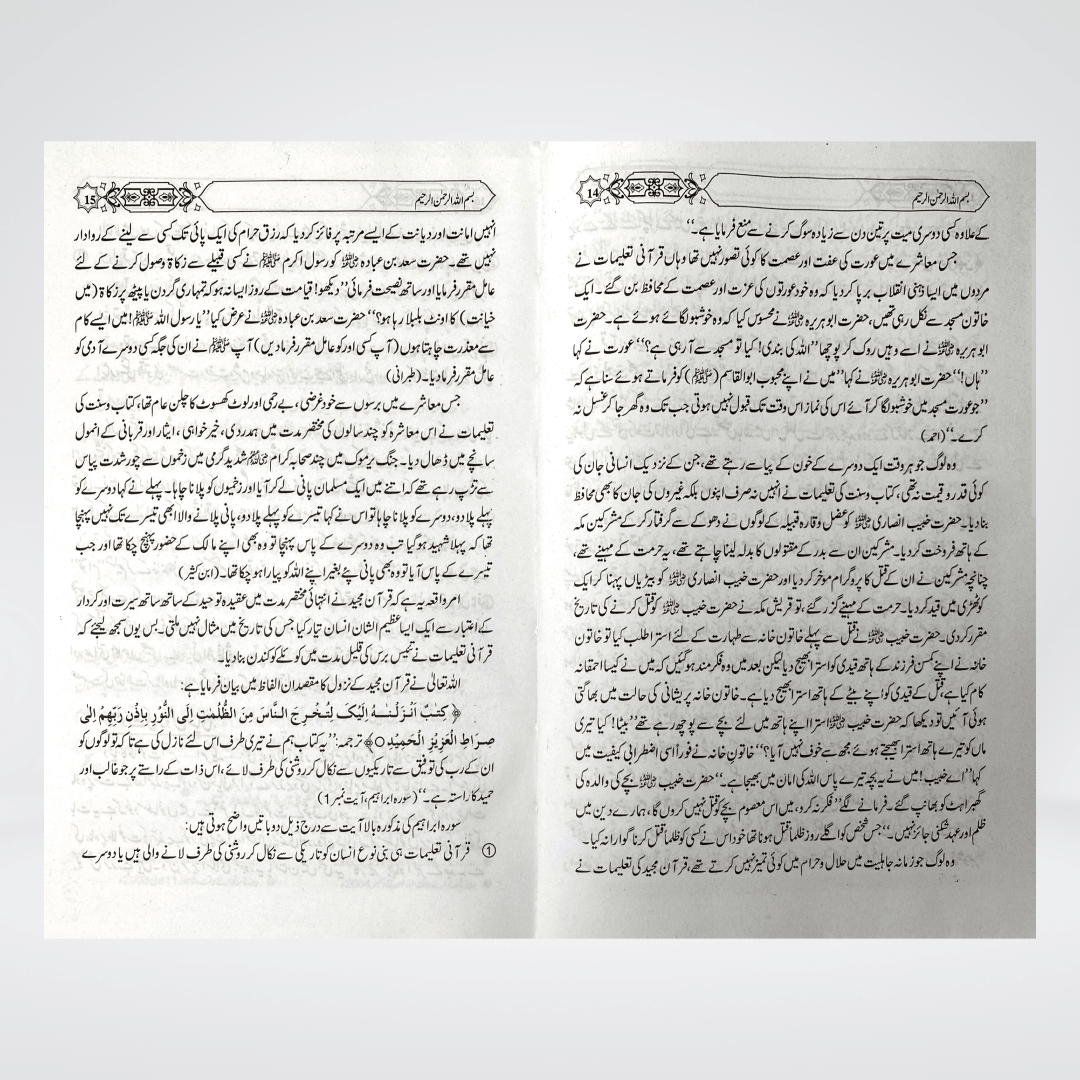 بسم اللہ الرحمٰن الرحیم
14
کے علاوہ کسی دوسری میت پر تین دن سے زیادہ سوگ کرنے سے منع فرمایا ہے۔‘‘
جس معاشرے میں عورت کی عفت اور عصمت کا کوئی تصور نہیں تھا وہاں قرآنی تعلیمات نے
مردوں میں ایسا ذہنی انقلاب برپا کر دیا کہ وہ خود عورتوں کی عزت اور عصمت کے محافظ بن گئے۔ ایک
خاتون مسجد سے نکل رہی تھیں، حضرت ابوہریرہ رضی اللہ عنہ نے محسوس کیا کہ وہ خوشبو لگائے ہوئے ہے۔ حضرت
ابوہریرہ رضی اللہ عنہ نے اسے وہیں روک کر پوچھا ’’اللہ کی بندی! کیا تو مسجد سے آ رہی ہے؟‘‘ عورت نے کہا
’’ہاں!‘‘ حضرت ابوہریرہ رضی اللہ عنہ نے کہا ’’میں نے اپنے محبوب ابوالقاسم (ﷺ) کو فرماتے ہوئے سنا ہے کہ
’’جو عورت مسجد میں خوشبو لگا کر آئے اس کی نماز اس وقت تک قبول نہیں ہوتی جب تک وہ گھر جا کر غسل نہ
کرے۔‘‘ (احمد)
وہ لوگ جو ہر وقت ایک دوسرے کے خون کے پیاسے رہتے تھے، جن کے نزدیک انسانی جان کی
کوئی قدر و قیمت نہ تھی، کتاب و سنت کی تعلیمات نے انہیں نہ صرف اپنوں بلکہ غیروں کی جان کا بھی محافظ
بنا دیا۔ حضرت خبیب انصاری رضی اللہ عنہ کو عضل و قارہ قبیلہ کے لوگوں نے دھوکے سے گرفتار کر کے مشرکین مکہ
کے ہاتھ فروخت کر دیا۔ مشرکین ان سے بدر کے مقتولوں کا بدلہ لینا چاہتے تھے، یہ حرمت کے مہینے تھے،
چنانچہ مشرکین نے ان کے قتل کا پروگرام مؤخر کر دیا اور حضرت خبیب انصاری رضی اللہ عنہ کو بیڑیاں پہنا کر ایک
کوٹھڑی میں قید کر دیا۔ حرمت کے مہینے گزر گئے، تو قریش مکہ نے حضرت خبیب رضی اللہ عنہ کو قتل کرنے کی تاریخ
مقرر کر دی۔ حضرت خبیب رضی اللہ عنہ نے قتل سے پہلے خاتون خانہ سے طہارت کے لئے استرا طلب کیا تو خاتون
خانہ نے اپنے کمسن فرزند کے ہاتھ قیدی کو استرا بھیج دیا لیکن بعد میں وہ فکر مند ہو گئیں کہ میں نے کیسا احمقانہ
کام کیا ہے، قتل کے قیدی کو اپنے بیٹے کے ہاتھ استرا بھیج دیا ہے۔ خاتون خانہ پریشانی کی حالت میں بھاگتی
ہوئی آئیں تو دیکھا کہ حضرت خبیب رضی اللہ عنہ استرا اپنے ہاتھ میں لئے بچے سے پوچھ رہے تھے ’’بیٹا! کیا تیری
ماں کو تیرے ہاتھ استرا بھیجتے ہوئے مجھ سے خوف نہیں آیا؟‘‘ خاتون خانہ نے فوراً اسی اضطرابی کیفیت میں
کہا ’’اے خبیب! میں نے یہ بچہ تیرے پاس اللہ کی امان میں بھیجا ہے۔‘‘ حضرت خبیب رضی اللہ عنہ بچے کی والدہ کی
گھبراہٹ کو بھانپ گئے۔ فرمانے لگے ’’فکر نہ کرو، میں اس معصوم بچے کو قتل نہیں کروں گا، ہمارے دین میں
ظلم اور عہد شکنی جائز نہیں۔‘‘ جس شخص کو اگلے روز ظلماً قتل ہونا تھا خود اس نے کسی کو ظلماً قتل کرنا گوارا نہ کیا۔
وہ لوگ جو زمانہ جاہلیت میں حلال و حرام میں کوئی تمیز نہیں کرتے تھے، قرآن مجید کی تعلیمات نے
بسم اللہ الرحمٰن الرحیم
15
انہیں امانت اور دیانت کے ایسے مرتبہ پر فائز کر دیا کہ رزق حرام کی ایک پائی تک کسی سے لینے کے روادار
نہیں تھے۔ حضرت سعد بن عبادہ رضی اللہ عنہ کو رسول اکرم ﷺ نے کسی قبیلے سے زکاۃ وصول کرنے کے لئے
عامل مقرر فرمایا اور ساتھ نصیحت فرمائی ’’دیکھو! قیامت کے روز ایسا نہ ہو کہ تمہاری گردن یا پیٹھ پر زکاۃ (میں
خیانت) کا اونٹ بلبلا رہا ہو؟‘‘ حضرت سعد بن عبادہ رضی اللہ عنہ نے عرض کیا ’’یا رسول اللہ ﷺ! میں ایسے کام
سے معذرت چاہتا ہوں (آپ کسی اور کو عامل مقرر فرما دیں) آپ ﷺ نے ان کی جگہ کسی دوسرے آدمی کو
عامل مقرر فرما دیا۔ (طبرانی)
جس معاشرے میں برسوں سے خودغرضی، بے رحمی اور لوٹ کھسوٹ کا چلن عام تھا، کتاب و سنت کی
تعلیمات نے اس معاشرہ کو چند سالوں کی مختصر مدت میں ہمدردی، خیر خواہی، ایثار اور قربانی کے انمول
سانچے میں ڈھال دیا۔ جنگ یرموک میں چند صحابہ کرام رضی اللہ عنہم شدید گرمی میں زخموں سے چور شدت پیاس
سے تڑپ رہے تھے کہ اتنے میں ایک مسلمان پانی لے کر آیا اور زخمیوں کو پلانا چاہا۔ پہلے نے کہا دوسرے کو
پہلے پلا دو، دوسرے کو پلانا چاہا تو اس نے کہا تیسرے کو پہلے پلا دو، پانی پلانے والا ابھی تیسرے تک نہیں پہنچا
تھا کہ پہلا شہید ہو گیا تب وہ دوسرے کے پاس پہنچا تو وہ بھی اپنے مالک کے حضور پہنچ چکا تھا اور جب
تیسرے کے پاس آیا تو وہ بھی پانی پئے بغیر اپنے اللہ کو پیارا ہو چکا تھا۔ (ابن کثیر)
امر واقعہ یہ ہے کہ قرآن مجید نے انتہائی مختصر مدت میں عقیدہ توحید کے ساتھ ساتھ سیرت اور کردار
کے اعتبار سے ایک ایسا عظیم الشان انسان تیار کیا جس کی تاریخ میں مثال نہیں ملتی۔ بس یوں سمجھ لیجئے کہ
قرآنی تعلیمات نے تئیس برس کی قلیل مدت میں کوئلے کو کندن بنا دیا۔
اللہ تعالیٰ نے قرآن مجید کے نزول کا مقصد ان الفاظ میں بیان فرمایا ہے:
﴿ كِتٰبٌ اَنْزَلْنٰهُ اِلَيْكَ لِتُخْرِجَ النَّاسَ مِنَ الظُّلُمٰتِ اِلَى النُّوْرِ بِاِذْنِ رَبِّهِمْ اِلٰى
صِرَاطِ الْعَزِيْزِ الْحَمِيْدِ ○﴾ ترجمہ: ’’یہ کتاب ہم نے تیری طرف اس لئے نازل کی ہے تاکہ تو لوگوں کو
ان کے رب کی توفیق سے تاریکیوں سے نکال کر روشنی کی طرف لائے، اس ذات کے راستے پر جو غالب اور
حمید کا راستہ ہے۔‘‘ (سورہ ابراہیم، آیت نمبر ۱)
سورہ ابراہیم کی مذکورہ بالا آیت سے درج ذیل دو باتیں واضح ہوتی ہیں:
① قرآنی تعلیمات ہی بنی نوع انسان کو تاریکی سے نکال کر روشنی کی طرف لانے والی ہیں یا دوسرے